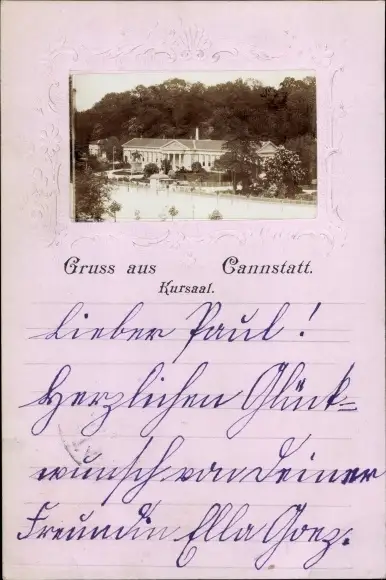 Gruss aus Cannstatt.
Kursaal.
Lieber Paul!
Herzlichen Glück=
wunsch von Deiner
Freundin Ella Goez.